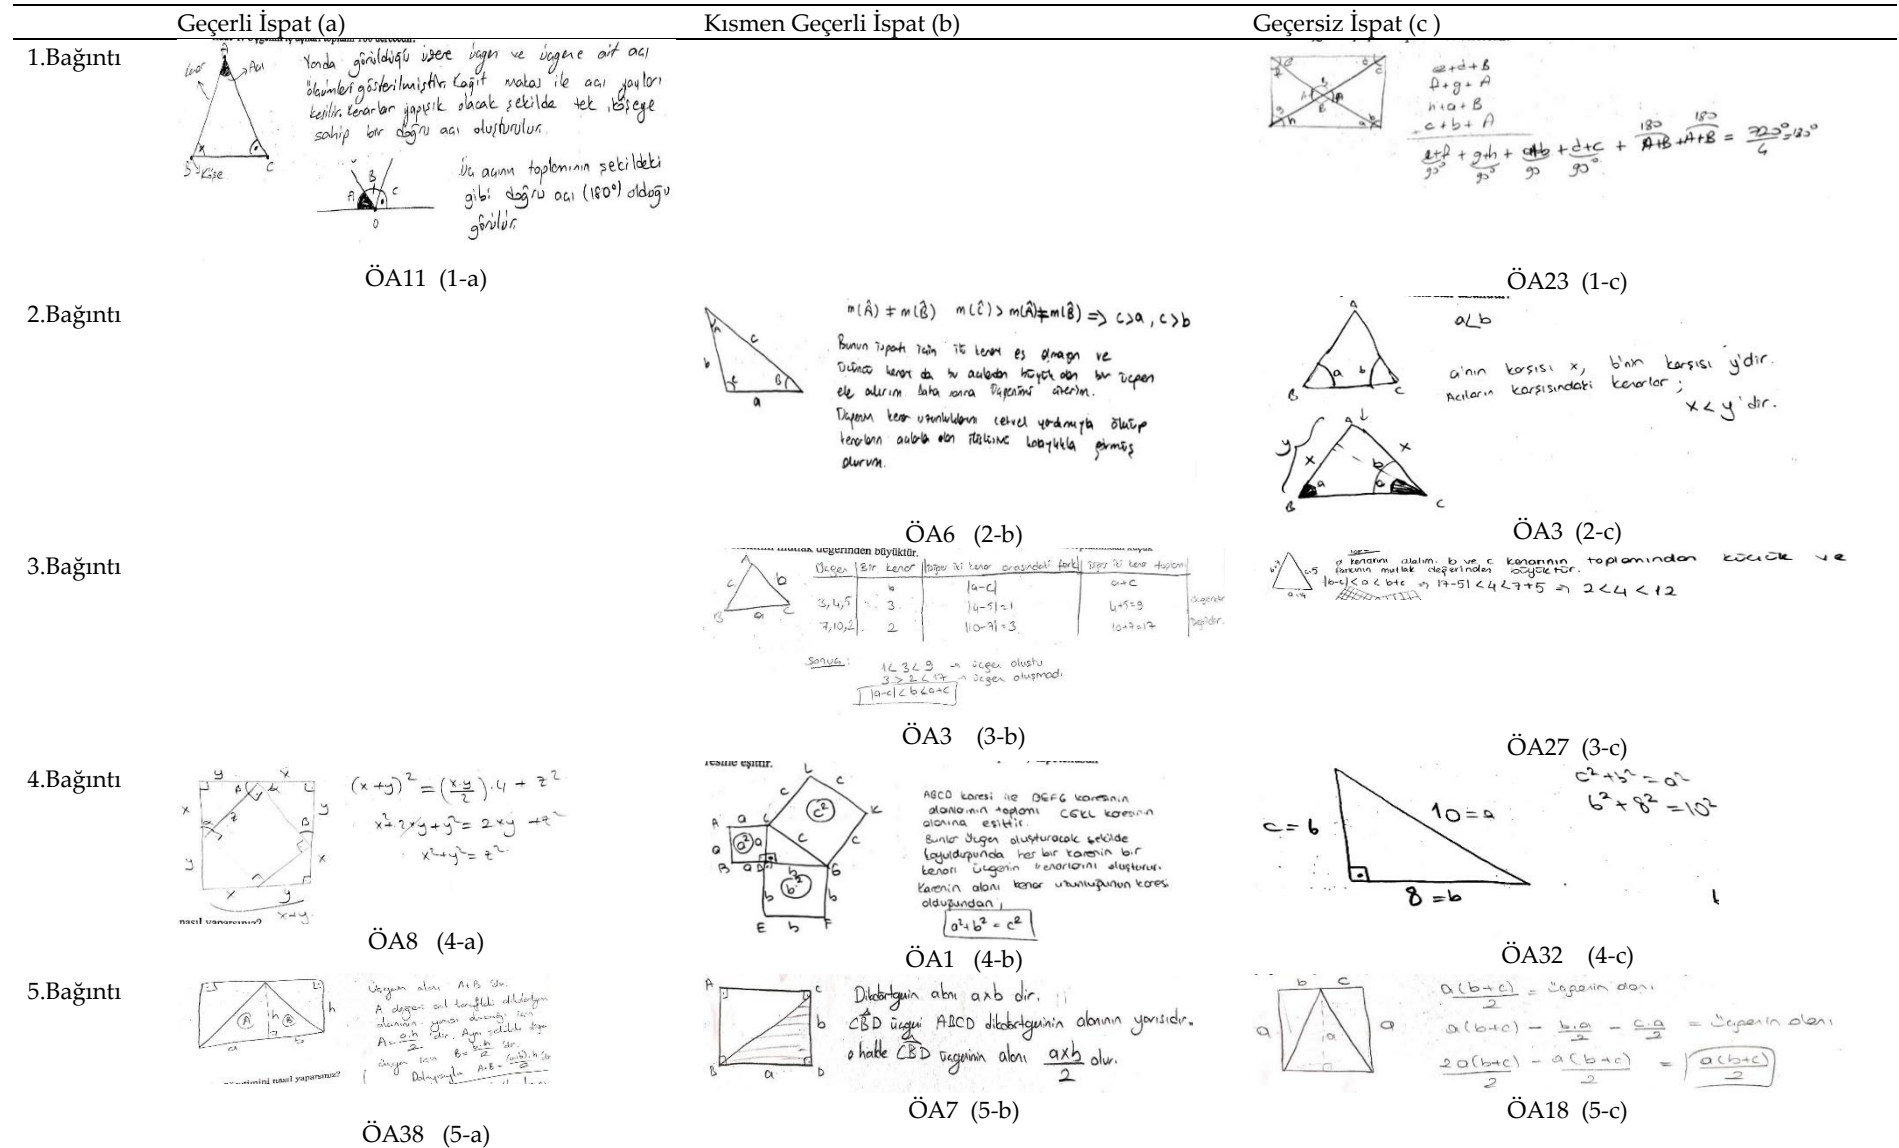 Geçerli İspat (a)
Kısmen Geçerli İspat (b)
Geçersiz İspat (c )
1.Bağıntı
Kenar
Açı
Köşe
B
C
Yanda görüldüğü üzere üçgen ve üçgene ait açı
ölçümleri gösterilmiştir. Kağıt makas ile açı yayları
kesilir. Kenarlar yapışık olacak şekilde tek köşeye
sahip bir doğru açı oluşturulur.
A B C
O
Üç açının toplamının şekildeki
gibi doğru açı (180°) olduğu
görülür.
ÖA11 (1-a)
e+d+B
f+g+A
h+a+B
c+b+A
e+f + g+h + a+b + d+c + A+B + A+B = 720°/4 = 180°
90° 90° 90 90° 180 180
ÖA23 (1-c)
2.Bağıntı
m(Â) ≠ m(B̂) m(Ĉ) > m(Â) ≠ m(B̂) => c>a, c>b
A c b B a
Bunun ispatı için iki kenar eş olmayan ve
üçüncü kenar da bu açılardan büyük olan bir üçgen
ele alırım. Daha sonra üçgenimi çizerim.
Üçgenin kenar uzunluklarını cetvel yardımıyla ölçüp
kenarların açılarla olan ilişkisine kolaylıkla girmiş
olurum.
ÖA6 (2-b)
a<b
A a b B C
a'nın karşısı x, b'nin karşısı y'dir.
Açıların karşısındaki kenarlar;
x < y'dir.
y x a x b a B C
ÖA3 (2-c)
3.Bağıntı
mutlak değerinden büyüktür.
A c b B a C
Üçgen Bir kenar Diğer iki kenar arasındaki fark Diğer iki kenar toplamı
b |a-c| a+c
3,4,5 3 |4-5|=1 4+5=9 üçgendir
7,10,2 2 |10-7|=3 10+7=17 değildir.
Sonuç: 1<3<9 → üçgen oluştu
3>2<17 → üçgen oluşmadı
|a-c|<b<a+c
ÖA3 (3-b)
a kenarını alalım. b ve c kenarının toplamından küçük ve
farkının mutlak değerinden büyüktür.
|b-c|<a<b+c => |7-5|<4<7+5 => 2<4<12
ÖA27 (3-c)
4.Bağıntı
y x
x y
z
y x
x y
x+y
(x+y)² = (x.y/2).4 + z²
x²+2xy+y² = 2xy + z²
x²+y² = z²
nasıl yaparsınız?
ÖA8 (4-a)
resine eşittir.
L c c K c²
A a C a a² a c c
B a D b G
b b² b
E b F
ABCD karesi ile DEFG karesinin
alanlarının toplamı CGKL karesinin
alanına eşittir.
Bunlar üçgen oluşturacak şekilde
koyulduğunda her bir karenin bir
kenarı üçgenin kenarlarını oluşturur.
Karenin alanı kenar uzunluğunun karesi
olduğundan;
a²+b² = c²
ÖA1 (4-b)
c²+b² = a²
6²+8² = 10²
c = 6
10 = a
8 = b
ÖA32 (4-c)
5.Bağıntı
A h B h
a b
Üçgenin alanı A+B dir.
A değeri sol taraftaki dikdörtgen
alanının yarısı olduğu için
A= a.h/2 dir. Aynı şekilde
üçgen için B= b.h/2 dir.
Dolayısıyla A+B = (a+b).h/2
nasıl yaparsınız?
ÖA38 (5-a)
A C
b
B a D
Dikdörtgenin alanı axb dir.
CBD üçgeni ABCD dikdörtgeninin alanının yarısıdır.
o halde CBD üçgeninin alanı axb/2 olur.
ÖA7 (5-b)
b c
a a a
a(b+c)/2 = üçgenin alanı
a(b+c) - b.a/2 - c.a/2 = üçgenin alanı
2a(b+c)/2 - a(b+c)/2 = a(b+c)/2
ÖA18 (5-c)